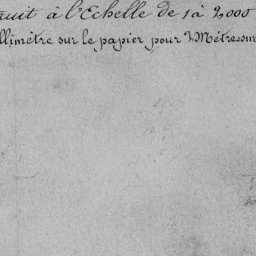 duit à l'Echelle de 1 à 2,000
llimètre sur le papier pour 2 Mètres sur